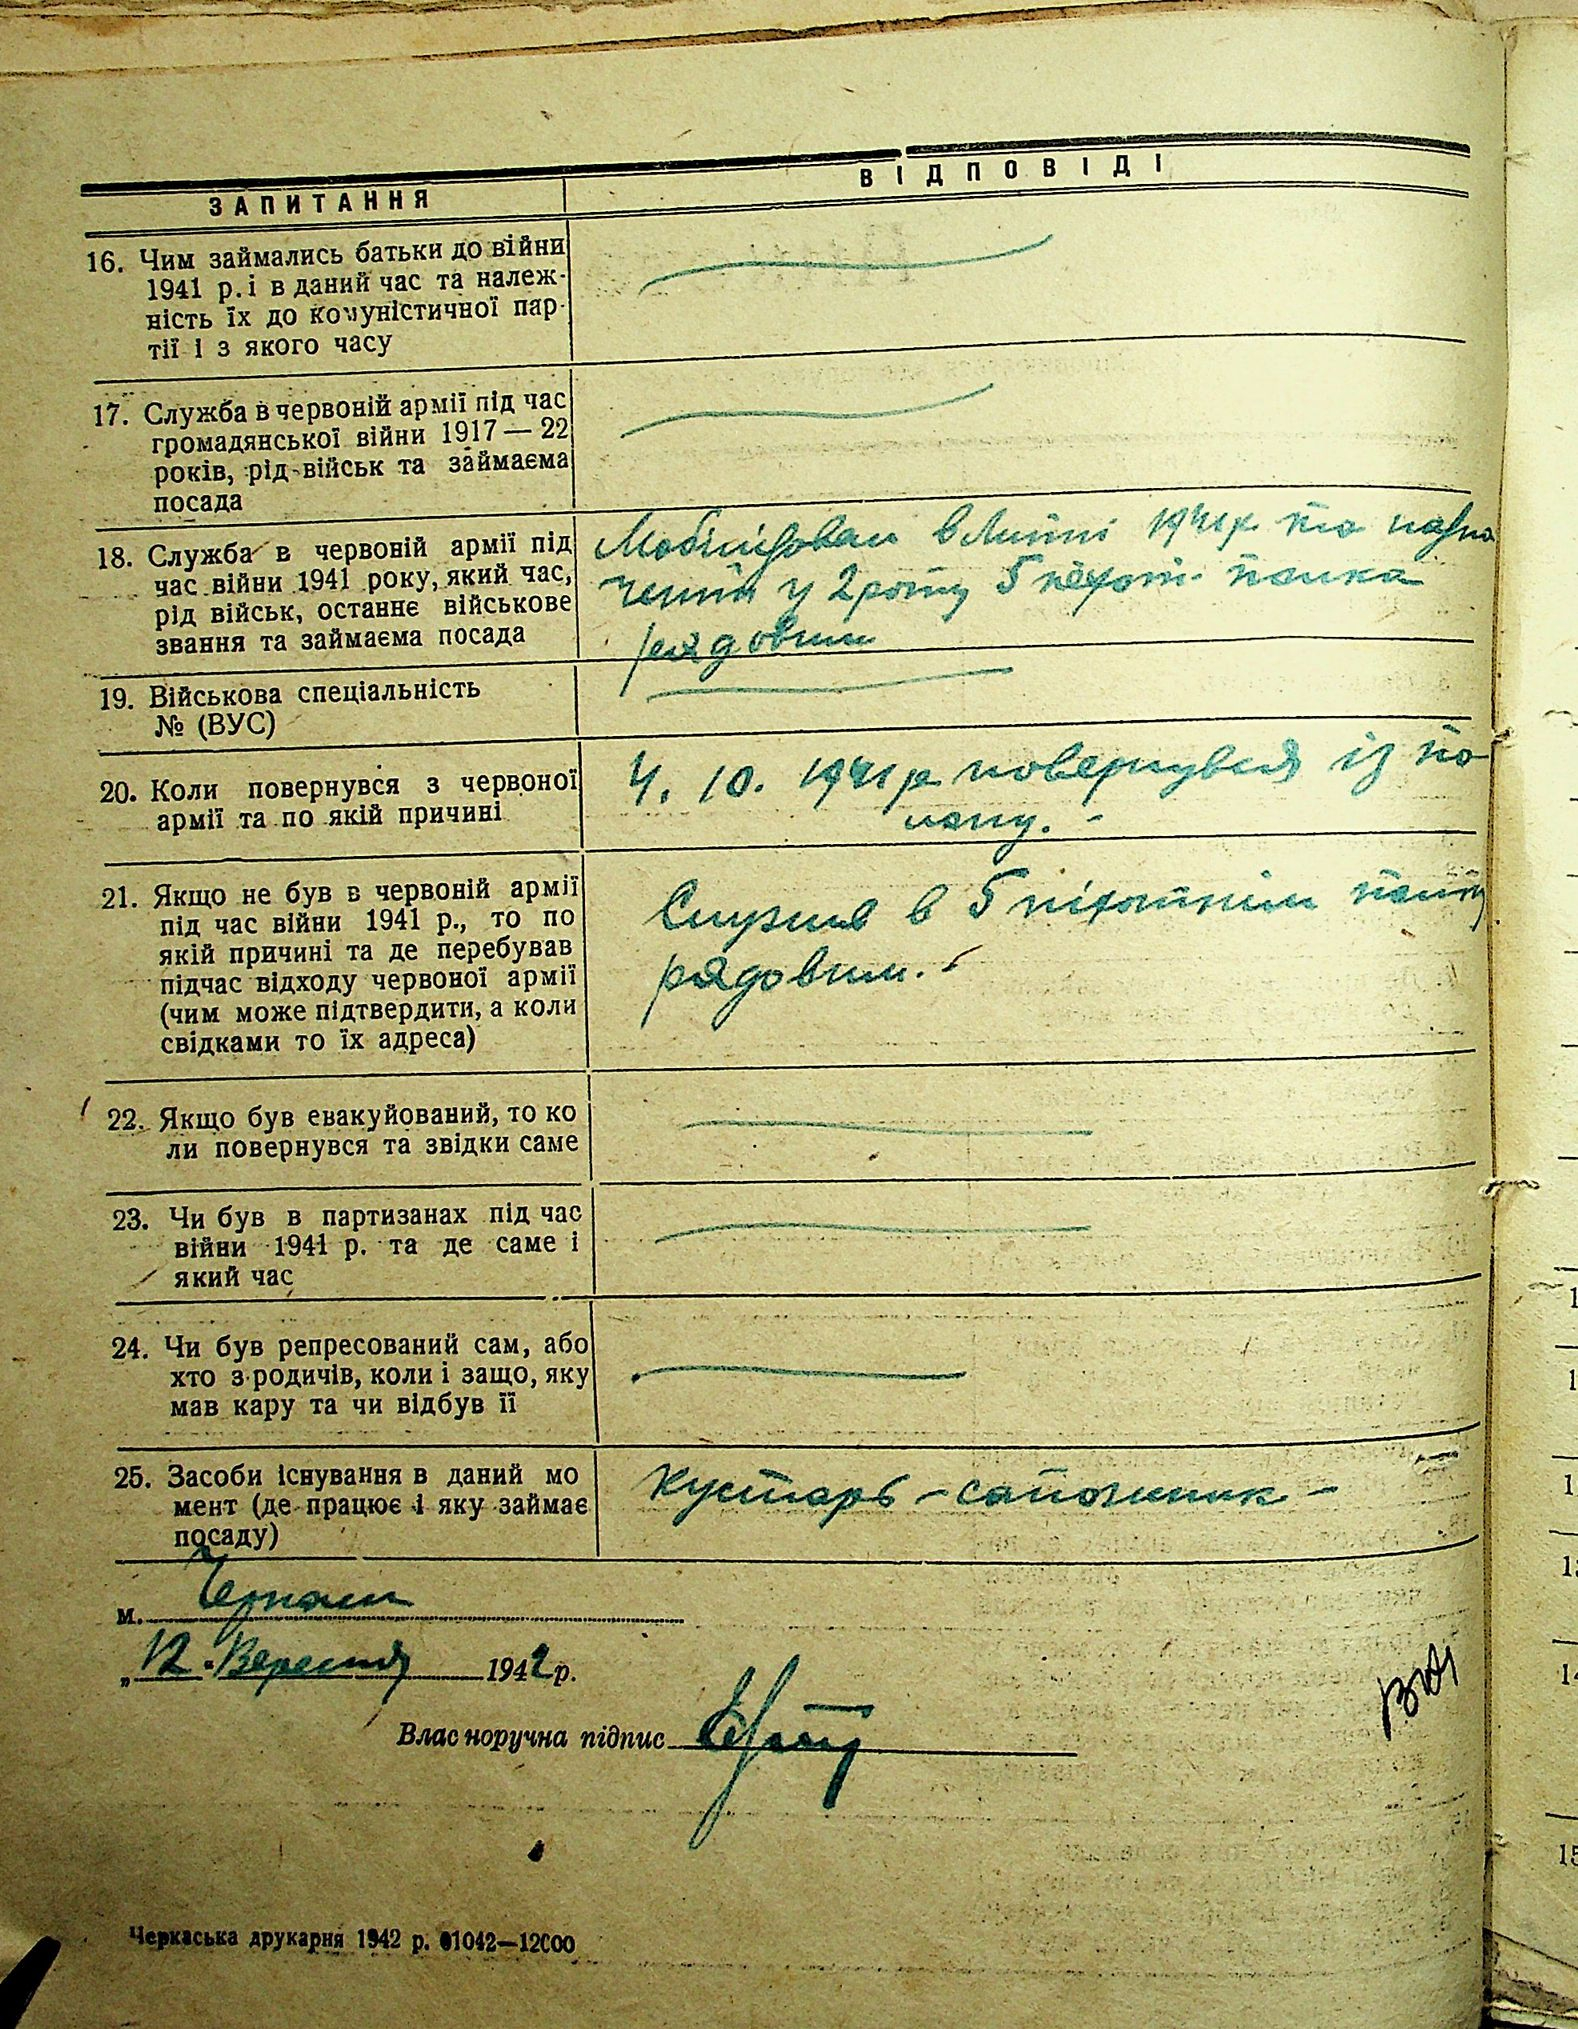 ЗАПИТАННЯ
ВІДПОВІДІ
16. Чим займались батьки до війни
1941 р. і в даний час та належ-
ність їх до комуністичної пар-
тії і з якого часу
17. Служба в червоній армії під час
громадянської війни 1917 — 22
років, рід військ та займаєма
посада
18. Служба в червоній армії під
час війни 1941 року, який час,
рід військ, останнє військове
звання та займаєма посада
Мобілізован в Липні 1941р та назна
чений у 2 роту 5 піхот. полка
рядовим
19. Військова спеціальність
№ (ВУС)
20. Коли повернувся з червоної
армії та по якій причині
4. 10. 1941р повернувся із по
лону. -
21. Якщо не був в червоній армії
під час війни 1941 р., то по
якій причині та де перебував
підчас відходу червоної армії
(чим може підтвердити, а коли
свідками то їх адреса)
Служив в 5 піхотнім полку
рядовим. -
22. Якщо був евакуйований, то ко
ли повернувся та звідки саме
23. Чи був в партизанах під час
війни 1941 р. та де саме і
який час
24. Чи був репресований сам, або
хто з родичів, коли і защо, яку
мав кару та чи відбув її
25. Засоби існування в даний мо
мент (де працює і яку займає
посаду)
кустарь - сапожник -
м. Черкаси
„12" Вересня 1942 р.
Власноручна підпис
Черкаська друкарня 1942 р. 01042—12000
1
1
1
13
14
15